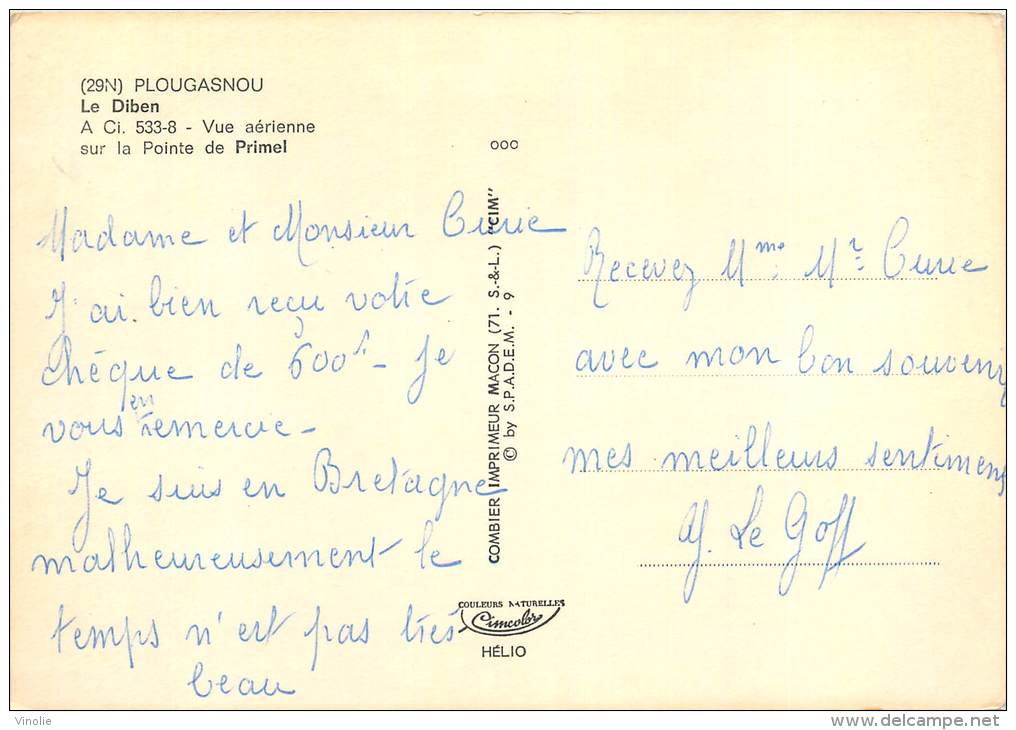 (29N) PLOUGASNOU
Le Diben
A Ci. 533-8 - Vue aérienne
sur la Pointe de Primel
Madame et Monsieur Curie
J'ai bien reçu votre
chéque de 600f - Je
vous en remercie -
Je suis en Bretagne
malheureusement le
temps n'est pas très
beau
COMBIER IMPRIMEUR MACON (71. S.-&-L.) "CIM"
© by S.P.A.D.E.M. - 9
COULEURS NATURELLES
Cimcolor
HÉLIO
Recevez Mme Mr Curie
avec mon bon souvenir
mes meilleurs sentiments
Le Goff
Vinolie
www.delcampe.net